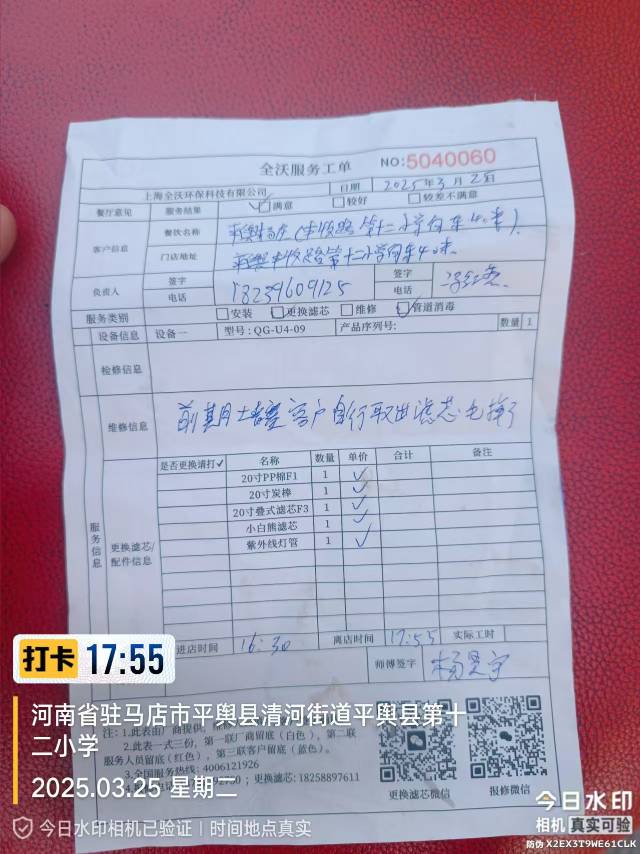 全沃服务工单
NO:5040060
上海全沃环保科技有限公司 日期 2025年3月25日
餐厅意见 服务结果 满意 较好 较差不满意
客户信息 餐饮名称 (丰收路第十二小学向东40米)
门店地址 平舆丰收路第十二小学向东40米
负责人 签字 签字
电话 18239609125 电话
服务类别 安装 更换滤芯 维修 管道消毒
设备信息 设备一 型号:QG-U4-09 产品序列号: 数量 1
检修信息
维修信息 前期堵塞客户自行取出滤芯 掉了
服务信息 更换滤芯/配件信息
是否更换请打✓ 名称 数量 单价 合计 备注
20寸PP棉F1 1 ✓
20寸炭棒 1 ✓
20寸叠式滤芯F3 1 ✓
小白熊滤芯 1 ✓
紫外线灯管 1 ✓
进店时间 16:30 离店时间 17:55 实际工时
师傅签字
注:1.此表由厂商提供,
2.此表一式三份,第一联厂商留底(白色),第二联
服务人员留底(红色),第三联客户留底(蓝色)。
3.全国服务热线:4006121926
更换滤芯:18258897611
更换滤芯微信 报修微信
打卡 17:55
河南省驻马店市平舆县清河街道平舆县第十
二小学
2025.03.25 星期二
今日水印相机已验证 时间地点真实
今日水印
相机 真实可验
防伪 X2EX3T9WE61CLK